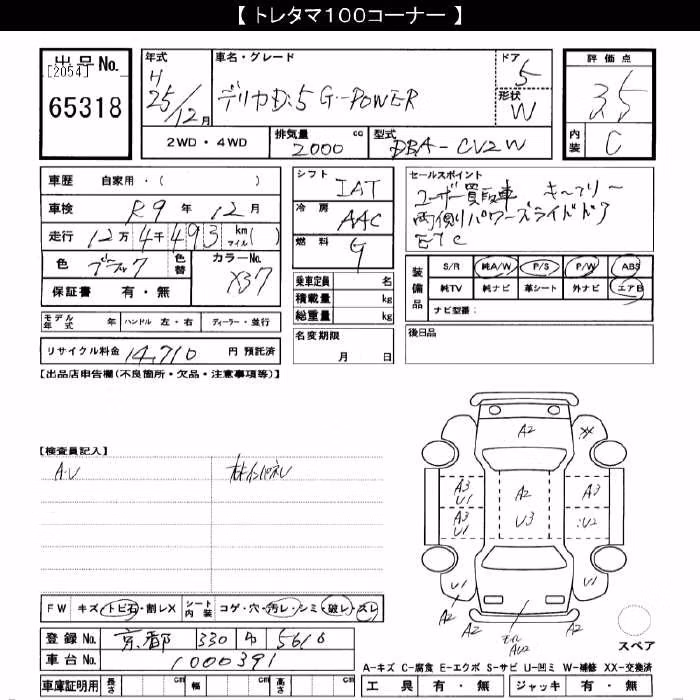 【 トレタマ100コーナー 】
出品No.
[2054]
65318
年式
H
25/12月
車名・グレード
デリカD:5 G-POWER
ドア
5
形状
W
評価点
3.5
内装
C
2WD・4WD
排気量
2000 cc
型式
DBA-CV2W
車歴 自家用・( )
車検 R9年 12月
走行 12万4千493 km マイル( )
色 ブラック
色替
カラーNo.
X37
保証書 有・無
シフト
IAT
冷房
AAC
燃料
G
乗車定員 名
積載量 kg
総重量 kg
セールスポイント
ユーザー買取車 キーフリー
両側パワースライドドア
ETC
装備品
S/R 純A/W P/S P/W ABS
純TV 純ナビ 革シート 外ナビ エアB
ナビ型番:
モデル年式 年 ハンドル 左・右 ディーラー・並行
リサイクル料金 14,710 円 預託済
名変期限
月 日
後日品
【出品店申告欄(不良箇所・欠品・注意事項等)】
【検査員記入】
A・U
A2
A3
U1
A2
A3
A3
U1
U3
U2
U1
U1
A2
A2
A2
スペア
FW キズ・トビ石・割レX
シート内装 コゲ・穴・汚レ・シミ・破レ・スレ
登録No. 京都 330 5616
車台No. 1000391
車庫証明用 長さ cm 幅 cm 高さ cm
A-キズ C-腐食 E-エクボ S-サビ U-凹ミ W-補修 XX-交換済
工具 有・無 ジャッキ 有・無